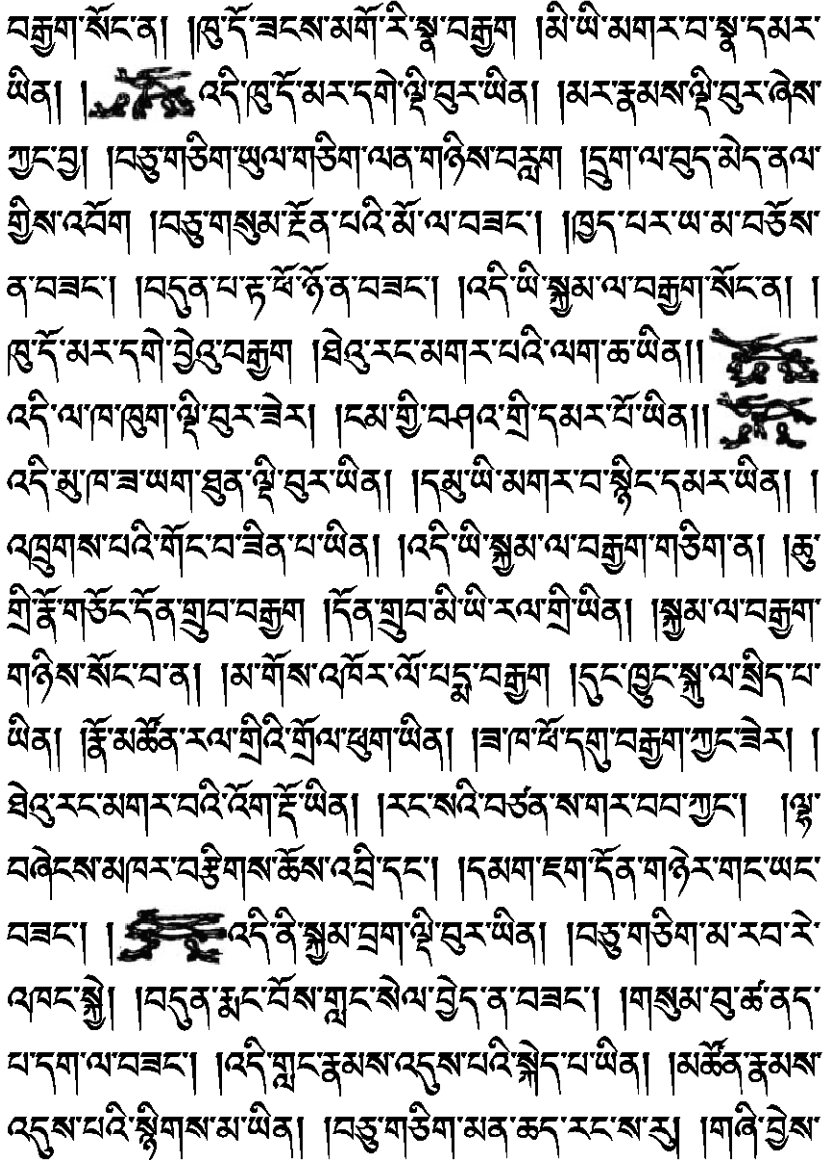 བརྒྱག་སོང་ན། །ཁུ་དོ་ཟངས་མགོ་རི་སྣ་བརྒྱག །མི་ཡི་མགར་བ་སྣ་དམར་
ཡིན། ། འདི་ཁུ་དོ་མར་དགེ་ལྡི་བུར་ཡིན། །མར་རྣམས་ལྡི་བུར་ཞེས་
ཀྱང་བྱ། །བཅུ་གཅིག་ཡུལ་གཅིག་ལན་གཉིས་བརླག །དྲུག་ལ་བུད་མེད་ནལ་
གྱིས་འབོག །བཅུ་གསུམ་རྔོན་པའི་མོ་ལ་བཟང་། །ཁྱད་པར་ཡ་མ་བཅོས་
ན་བཟང་། །བདུན་པ་རྟ་ཕོ་ཉོ་ན་བཟང་། །འདི་ཡི་སྐྱམ་ལ་བརྒྱག་སོང་ན། །
ཁུ་དོ་མར་དགེ་བྱེའུ་བརྒྱག །ཐེའུ་རང་མགར་པའི་ལག་ཆ་ཡིན།།
འདི་ལ་ཁ་ཁུག་ལྡི་བུར་ཟེར། །ངམ་གྱི་བཤའ་གྲི་དམར་པོ་ཡིན།།
འདི་མུ་ཁ་ཟ་ཡག་ཐུན་ལྡི་བུར་ཡིན། །དམུ་ཡི་མགར་བ་སྙིང་དམར་ཡིན། །
འཁྲུགས་པའི་གོང་བ་ཟིན་པ་ཡིན། །འདི་ཡི་སྐྱམ་ལ་བརྒྱག་གཅིག་ན། །ཆུ་
གྲི་རྣོ་གཅོང་དོན་གྲུབ་བརྒྱག །དོན་གྲུབ་མི་ཡི་རལ་གྲི་ཡིན། །སྐྱམ་ལ་བརྒྱག་
གཉིས་སོང་བ་ན། །མ་གོས་འཁོར་ལོ་པདྨ་བརྒྱག །དུང་ཁྱུང་སྐུ་ལ་སྲིད་པ་
ཡིན། །རྣོ་མཚོན་རལ་གྲིའི་གྲོལ་ཕུག་ཡིན། །ཟ་ཁ་ཕོ་དགུ་བརྒྱག་ཀྱང་ཟེར། །
ཐེའུ་རང་མགར་བའི་འོག་རྡོ་ཡིན། །རང་སའི་བཙན་ས་གར་བབ་ཀྱང་། །ལྷ་
བཞེངས་མཁར་བརྩིགས་ཆོས་འབྲི་དང་། །དམག་ཇག་དོན་གཉེར་གང་ཡང་
བཟང་། ། འདི་ནི་སྐྱམ་བྲག་ལྡི་བུར་ཡིན། །བཅུ་གཅིག་མ་རབ་རེ་
འཁང་སྐྱེ། །བདུན་རྨང་བོས་གླང་སེལ་བྱེད་ན་བཟང་། །གསུམ་བུ་ཚ་ནད་
པ་དག་ལ་བཟང་། །འདི་གླང་རྣམས་འདུས་པའི་སྐེད་པ་ཡིན། །མཚོན་རྣམས་
འདུས་པའི་སྙིགས་མ་ཡིན། །བཅུ་གཅིག་མན་ཆད་རང་ས་རུ། །གཞི་བྱེས་